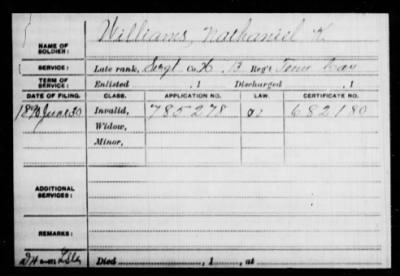 NAME OF SOLDIER: Williams, Nathaniel K.
SERVICE: Late rank, Sergt Co. H, 13 Reg't Tenn Cav
TERM OF SERVICE: Enlisted , 1 Discharged , 1
DATE OF FILING. CLASS. APPLICATION NO. LAW. CERTIFICATE NO.
1890 June 30 Invalid, 785278 682180
Widow,
Minor,
ADDITIONAL SERVICES:
REMARKS:
Died , 1 , at